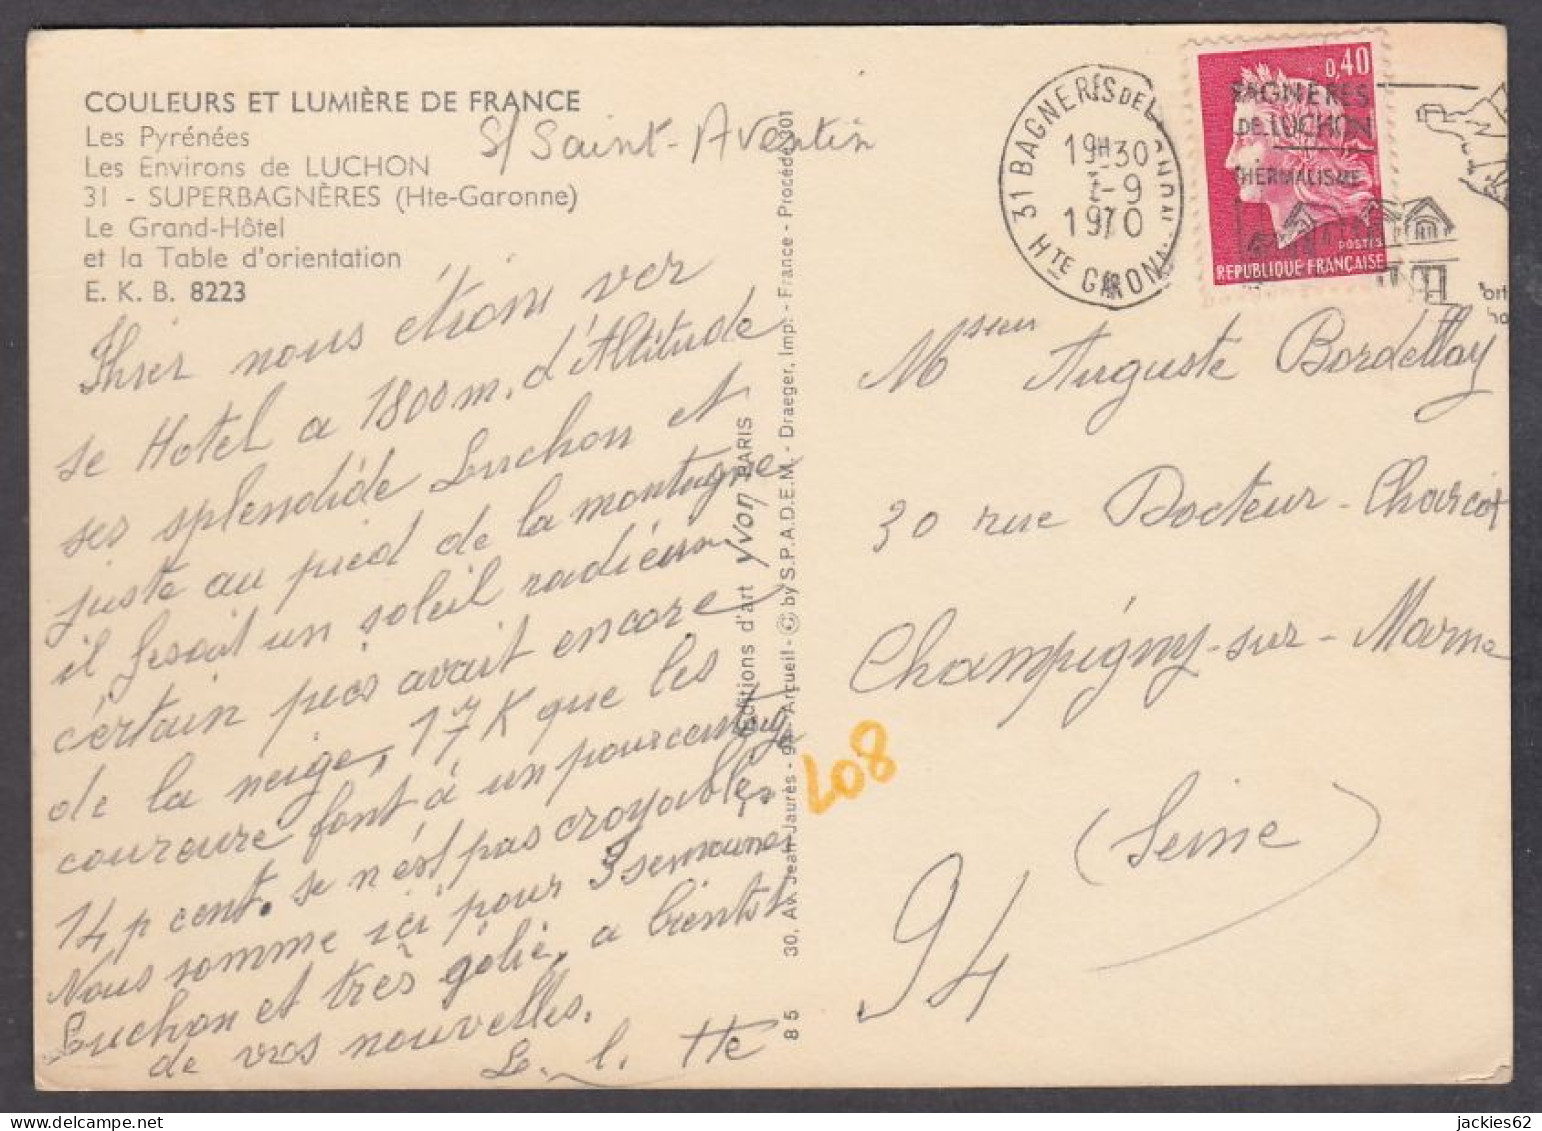 COULEURS ET LUMIÈRE DE FRANCE
Les Pyrénées
Les Environs de LUCHON
31 - SUPERBAGNÈRES (Hte-Garonne)
Le Grand-Hôtel
et la Table d'orientation
E. K. B. 8223
S/ Saint-Aventin
Ihier nous étions ver
se Hotel a 1800m. d'Altitude
ses splendide Luchon et
juste au pied de la montagne
il fesait un soleil radieux
certain pics avait encore
de la neige, 17K que les
coureure font à un pourcentage
14 p cent. se n'est pas croyable,
Nous somme ici pour 3 semaines
Luchon et très golie, a bientot
de vos nouvelles.
Editions d'art yvon PARIS
30, Av. Jean-Jaurès - 94 - Arcueil - © by S.P.A.D.E.M. - Draeger, Imp. - France - Procédé 301
85
31 BAGNERES DE LUCHON
19H30
-9
1970
HTE GARONNE
0,40
POSTES
REPUBLIQUE FRANÇAISE
BAGNERES
DE LUCHON
THERMALISME
Msieur Auguste Bordellay
30 rue Docteur-Charcot
Champigny-sur-Marne
(Seine)
94
108
jackies62